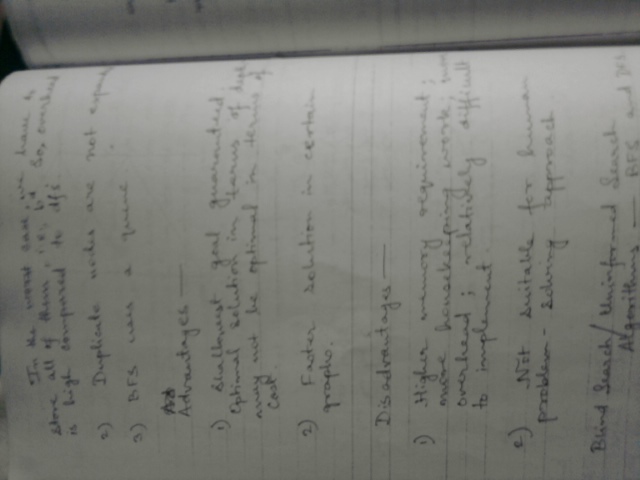 In the worst case we have to
store all of them, i.e., b^d. So, overhead
is high compared to dfs.
2) Duplicate nodes are not
3) BFS uses a queue.
Advantages —
1) Shallowest goal guaranteed.
Optimal solution in terms of
may not be optimal in terms of
cost.
2) Faster solution in certain
graphs.
Disadvantages —
1) Higher memory requirement;
more housekeeping work;
overhead; relatively difficult
to implement.
2) Not suitable for human
problem-solving approach.
Blind Search / Uninformed Search
Algorithms — BFS and DFS